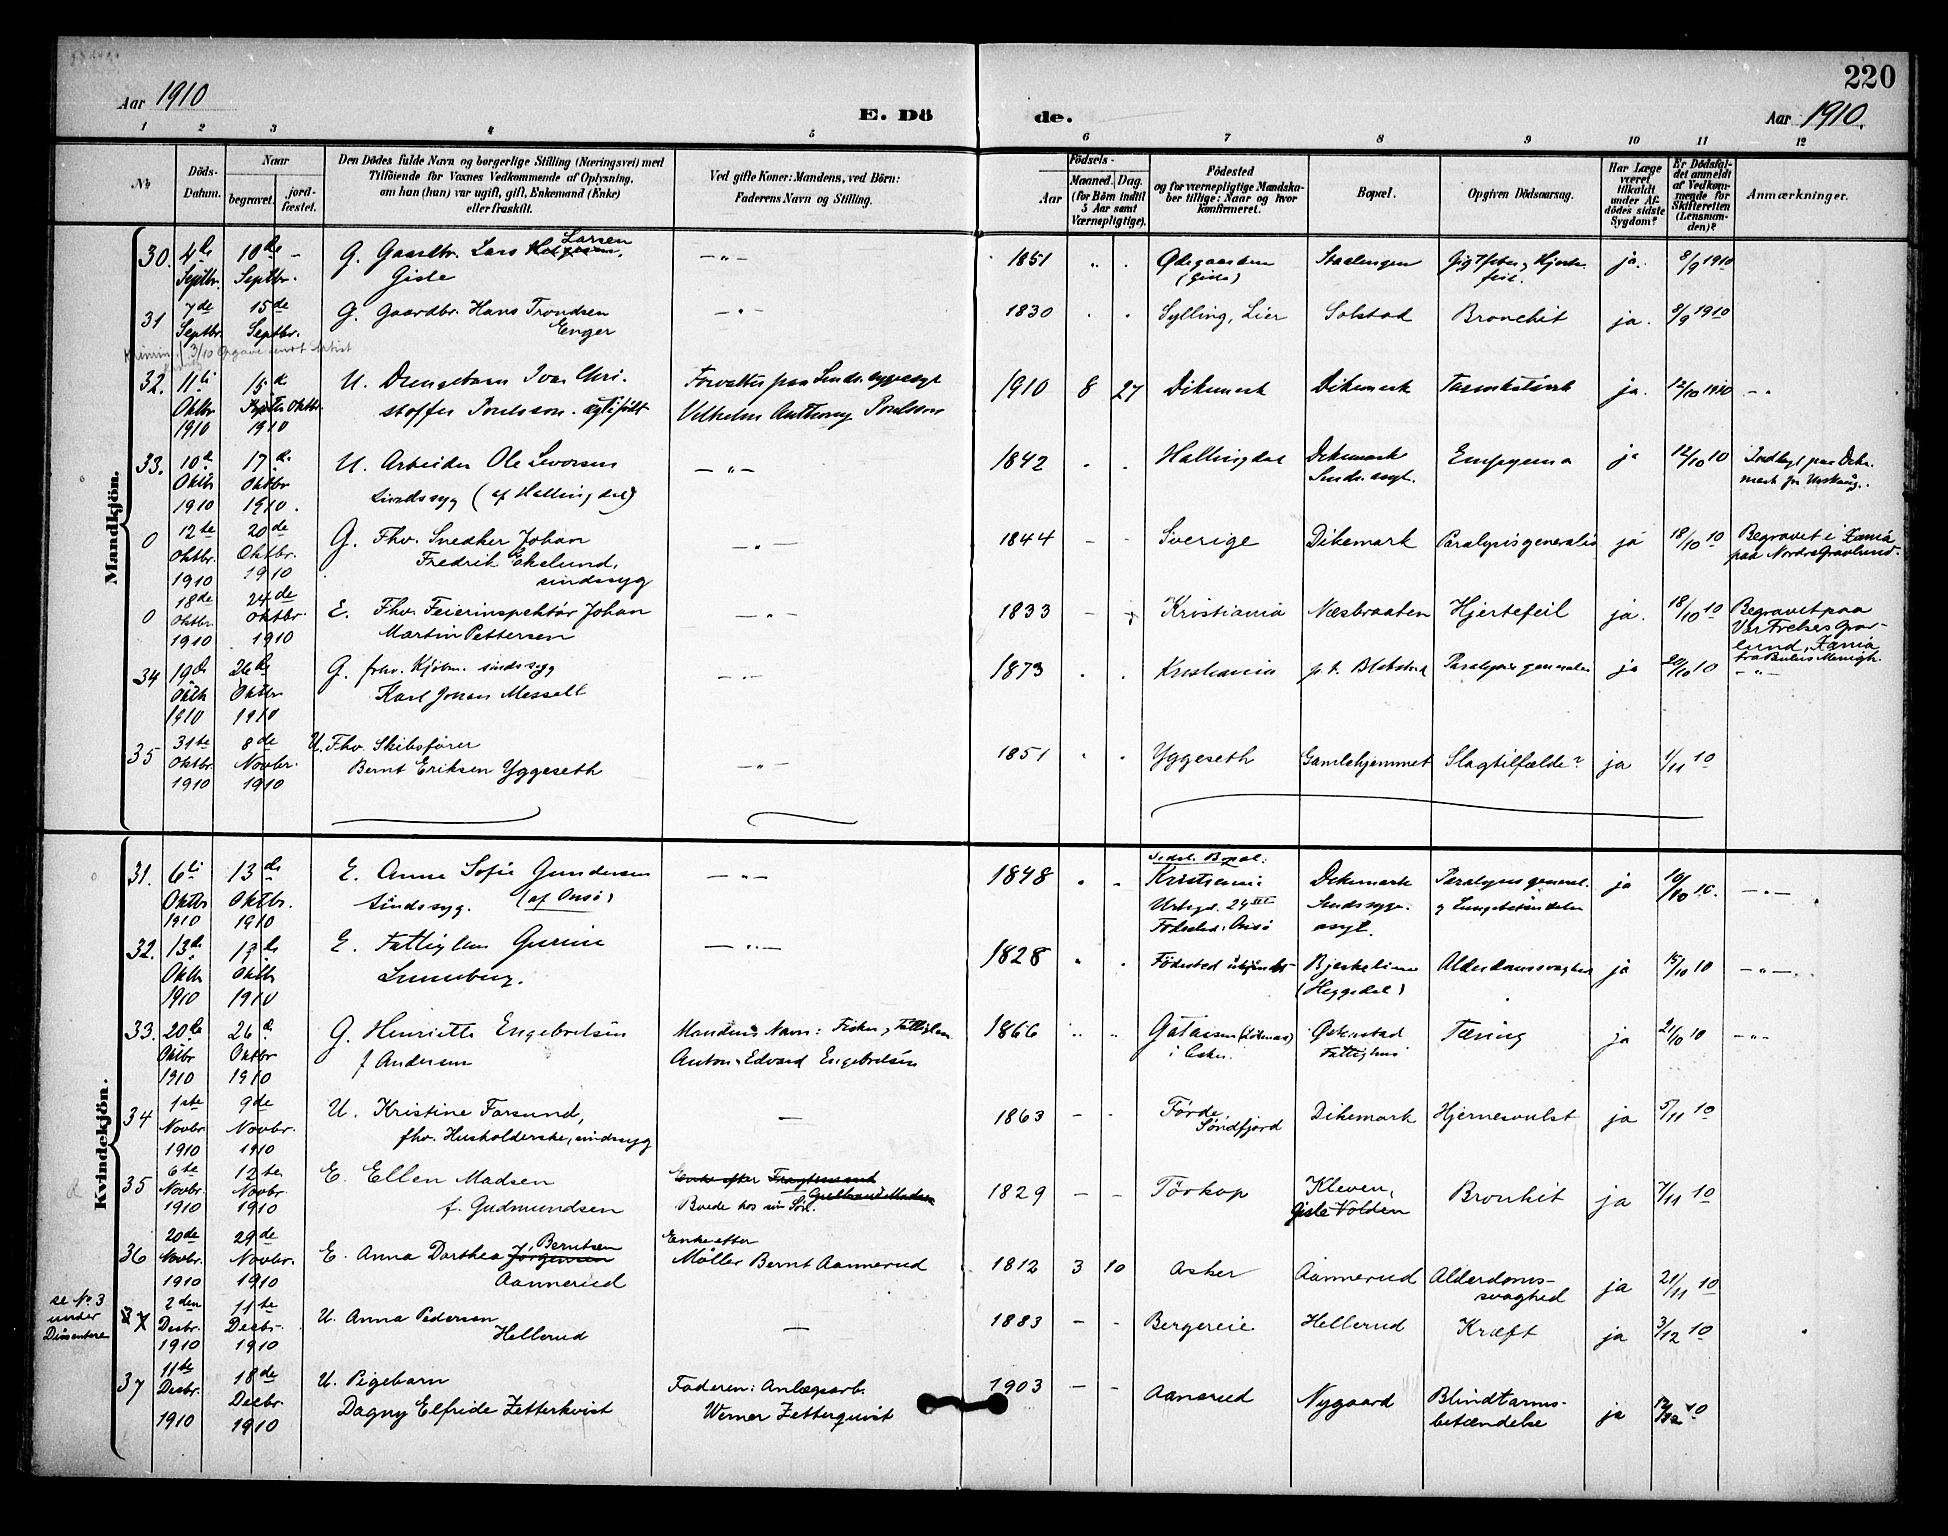 220
Aar 1910
E. Dö
de.
Aar 1910.
1 2 3 4 5 6 7 8 9 10 11 12
No
Döds-Datum.
Naar
begravet.
jord-fæstet.
Den Dödes fulde Navn og borgerlige Stilling (Næringsvei) med
Tilföiende for Voxnes Vedkommende af Oplysning,
om han (hun) var ugift, gift, Enkemand (Enke)
eller fraskilt.
Ved gifte Koner: Mandens, ved Börn:
Faderens Navn og Stilling.
Födsels-
Aar
Maaned. Dag.
(for Börn indtil
5 Aar samt
Værnepligtige).
Födested
og for værnepligtige Mandska-
ber tillige: Naar og hvor
konfirmeret.
Bopæl.
Opgiven Dödsaarsag.
Har Læge
været
tilkaldt
under Af-
dödes sidste
Sygdom?
Er Dödsfal-
det anmeldt
af Vedkom-
mende for
Skifteretten
(Lensman-
den)?
Anmærkninger.
Mandkjön.
30. 4de 10de - G. Gaardbr. Lars Larsen - " - 1851 " . Ødegaarden Staalengen Gigtfeber, Hjerte- ja. 8/9 1910
Septbr. Septbr. Gisle (Gisle) feil.
31 7de 15de G. Gaardbr. Hans Trondsen - " - 1830 . . Sylling, Lier Solstad Bronchit ja. 8/9 1910
Septbr. Septbr. Enger
3/10 Opgave sendt
32. 11te 15de U. Drengebarn Ivar Chri- Forvalter paa Sindssygeasyl 1910 8 27 Dikemark Dikemark ja. 12/10 1910 - "
Oktbr. Oktbr. stoffer Poulsson. ægtefödt Vilhelm Anthony Poulsson
1910 1910
33. 10de 17de U. Arbeider Ole Levorsen - " - 1842 . . Hallingdal Dikemark Empyema ja 12/10 10 Indlagt paa Dike-
Oktbr Oktbr Sindssyg (af Hallingdal) Sindss. asyl. mark fra
1910 1910.
0 12te 20de G. Fhv. Snedker Johan - " - 1844 - - Sverige Dikemark Paralysis generalis ja 18/10 10 Begravet i Xania
Oktbr. Oktbr. Fredrik Ekelund, paa Nordre Gravlund.
1910 1910 sindssyg
0 18de 24de E. Fhv. Feierinspektör Johan - " - 1833 - - Kristiania Næsbraaten Hjertefeil ja. 18/10 10 Begravet paa
Oktbr. Oktbr. Martin Pettersen Vor Frelsers Grav-
1910 1910 lund, Xania
34 19de 26de G. frhv. Kjöbm. sindssyg - . - 1873 . . Kristiania p.t. Blakstad Paralysis generalis ja 20/10 10 - " -
Oktb Oktbr Karl Johan Messelt
1910 1910
35 31te 8de U. Fhv. Skibsförer - " - 1851 . . Yggeseth Gamlehjemmet Slagtilfælde? ja 1/11 10
Oktbr. Novbr. Bernt Eriksen Yggeseth
1910 1910
Kvindekjön.
31. 6te 13de E. Anne Sofie Gundersen - " - 1848 . . Sidst. Bopæl: Dikemark Paralysis general. ja 10/10 10. - " -
Oktbr Oktbr. Sindssyg. (af Onsö) Kristiania Sindssyge- og Lungebetændelse
1910 1910 Urtegd. 29 asyl.
Födested: Onsö
32. 13de 19de E. Fattiglem Gurine - " - 1828 . . Födested ubekjendt Bjerkelime Alderdomssvaghed ja 15/10 10 - " -
Oktbr Oktbr Luneborg. (Heggedal)
1910 1910
33. 20de 26de G. Henriette Engebretsen Mandens Navn: Fisker, Fattiglem 1866 " " i Asker Øskestad Tæring ja 21/10 10 - " -
Oktbr Oktbr f Andersen Anton Edvard Engebretsen Fattighus
1910 1910
34 1ste 9de U. Kristine Farsund, - 1863 - - Förde, Dikemark Hjernesvulst ja 5/11 10
Novbr. Novbr. fhv. Husholderske, sindssyg Söndfjord
1910 1910
35 6te 12te E. Ellen Madsen Enke efter Fragtemand 1829 - - Törkop Kleven, Bronkit ja 7/11 10
Novbr. Novbr. f. Gudmundsen Gulbrand Madsen Gisle Volden
1910 1910 Boede hos sin
36 20de 29de E. Anna Dorthea Jörgensen Berntsen Enke efter 1812 3 10 Asker Aannerud Alderdoms- ja 21/11 10
Novbr. Novbr. Aannerud Möller Bernt Aannerud svaghed
1910 1910
se No. 3
under
Dissentere
37 2den 11te U. Anna Pedersen - 1883 - - Bergereie Hellerud Kræft ja 3/12 10
Desbr. Desbr. Hellerud
1910 1910
37 11te 18de U. Pigebarn Faderen: Anlægsarb. 1903 - - Aanerud Nygaard Blindtarms- ja 12/12 10
Desbr. Desbr. Dagny Elfride Zetterkvist Werner Zetterqvist betændelse
1910 1910